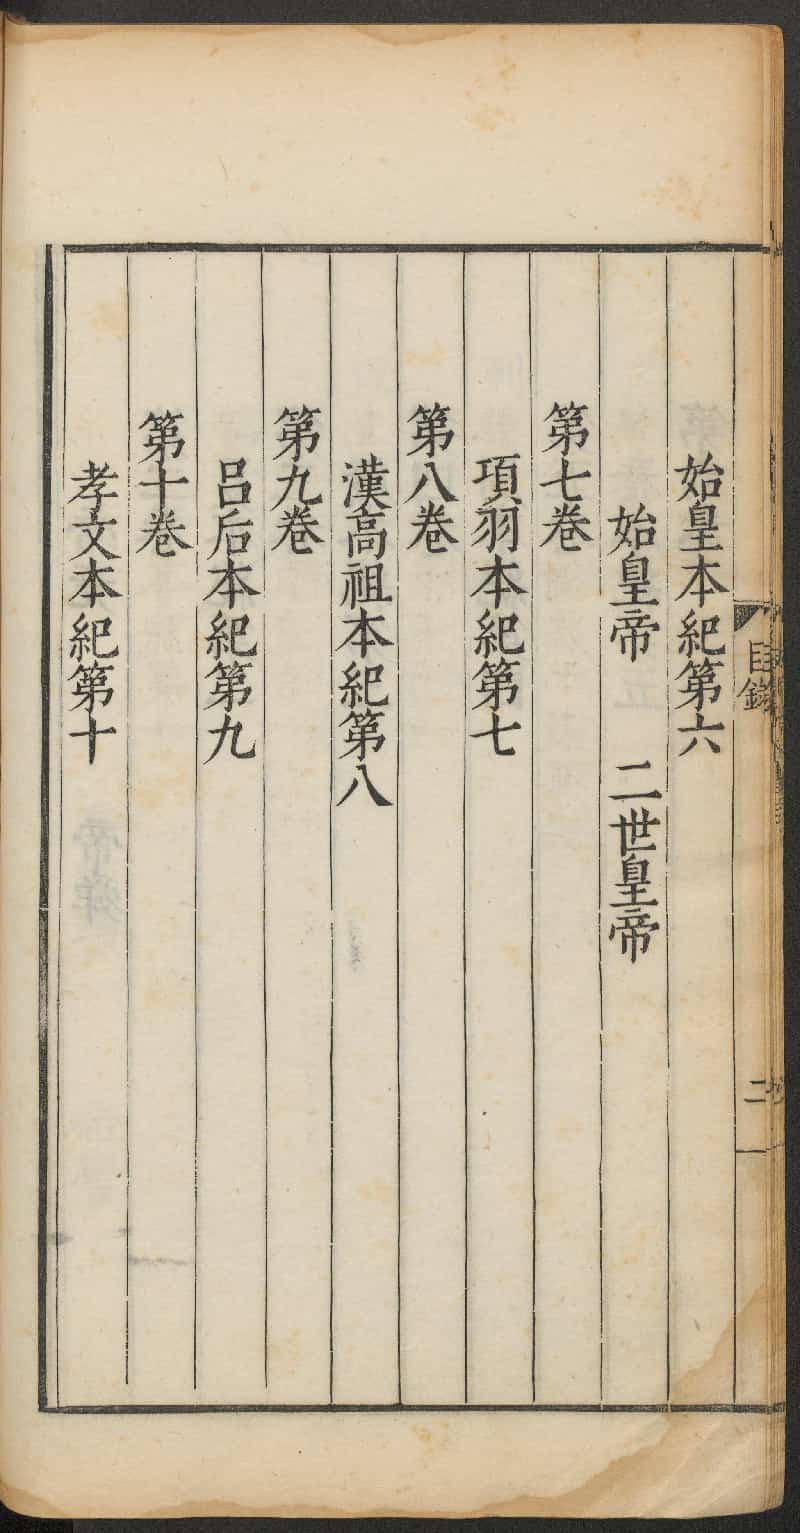 目錄
二
始皇本紀第六
始皇帝　二世皇帝
第七卷
項羽本紀第七
第八卷
漢高祖本紀第八
第九卷
呂后本紀第九
第十卷
孝文本紀第十